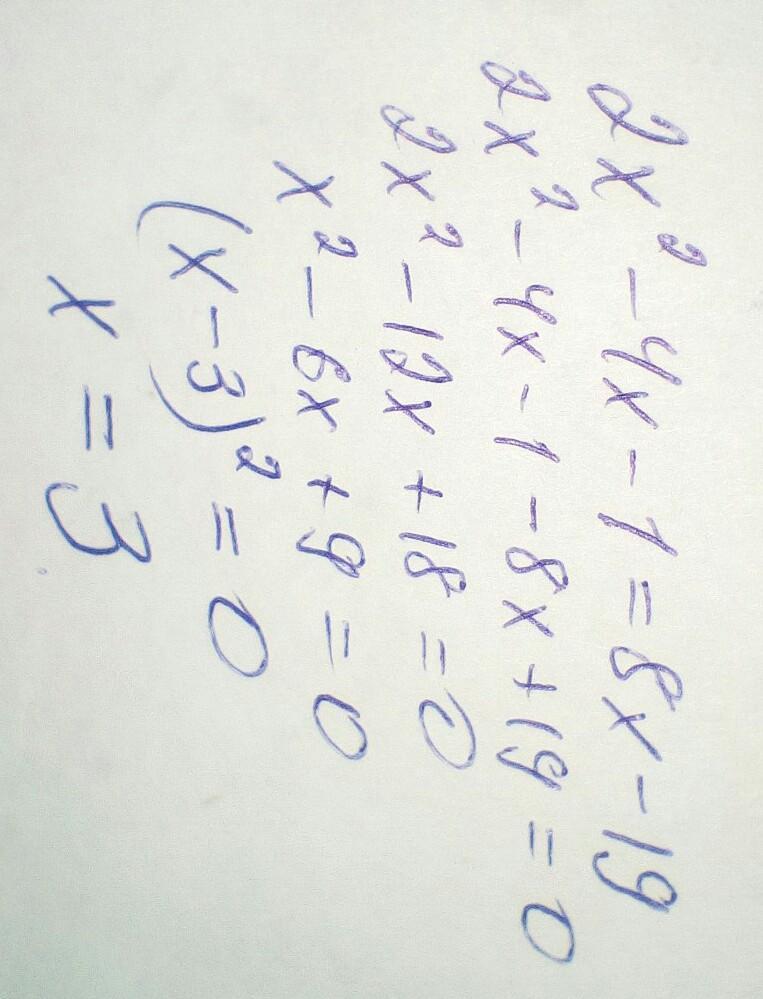 2x² - 4x - 1 = 8x - 19
2x² - 4x - 1 - 8x + 19 = 0
2x² - 12x + 18 = 0
x² - 6x + 9 = 0
(x - 3)² = 0
x = 3